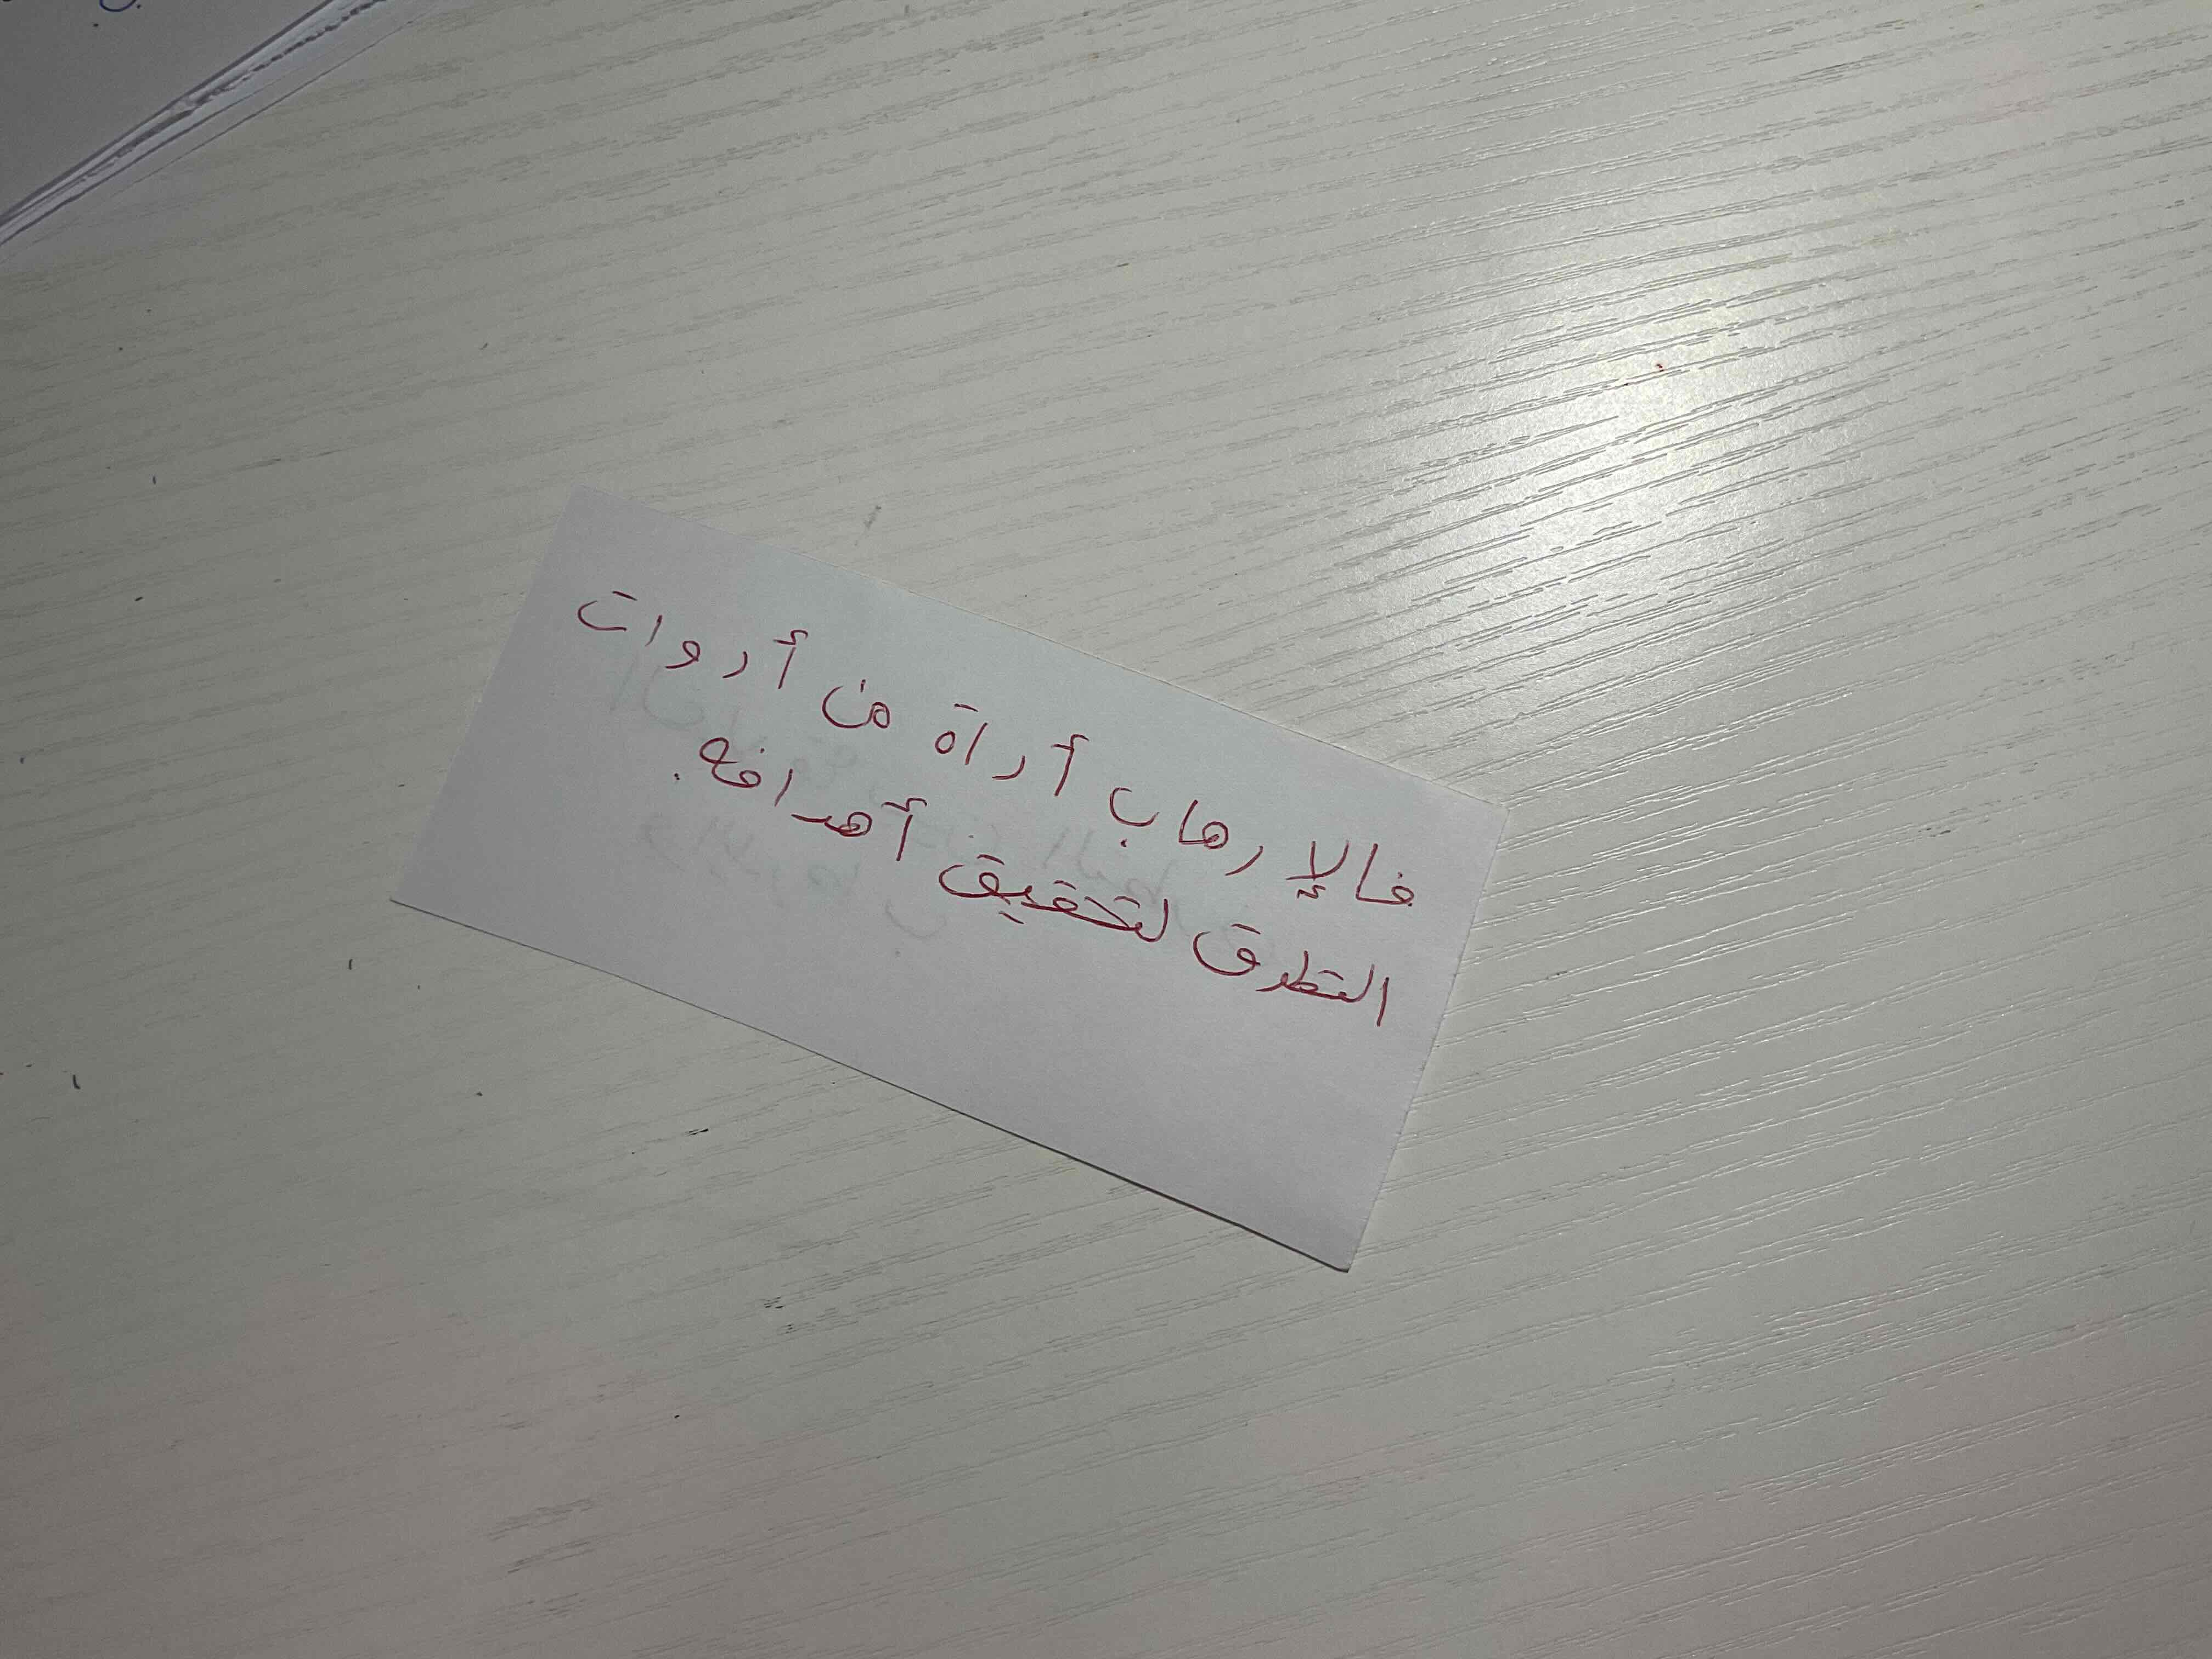 فالإرهاب أداة من أدوات
التطرق لتحقيق أهدافه.